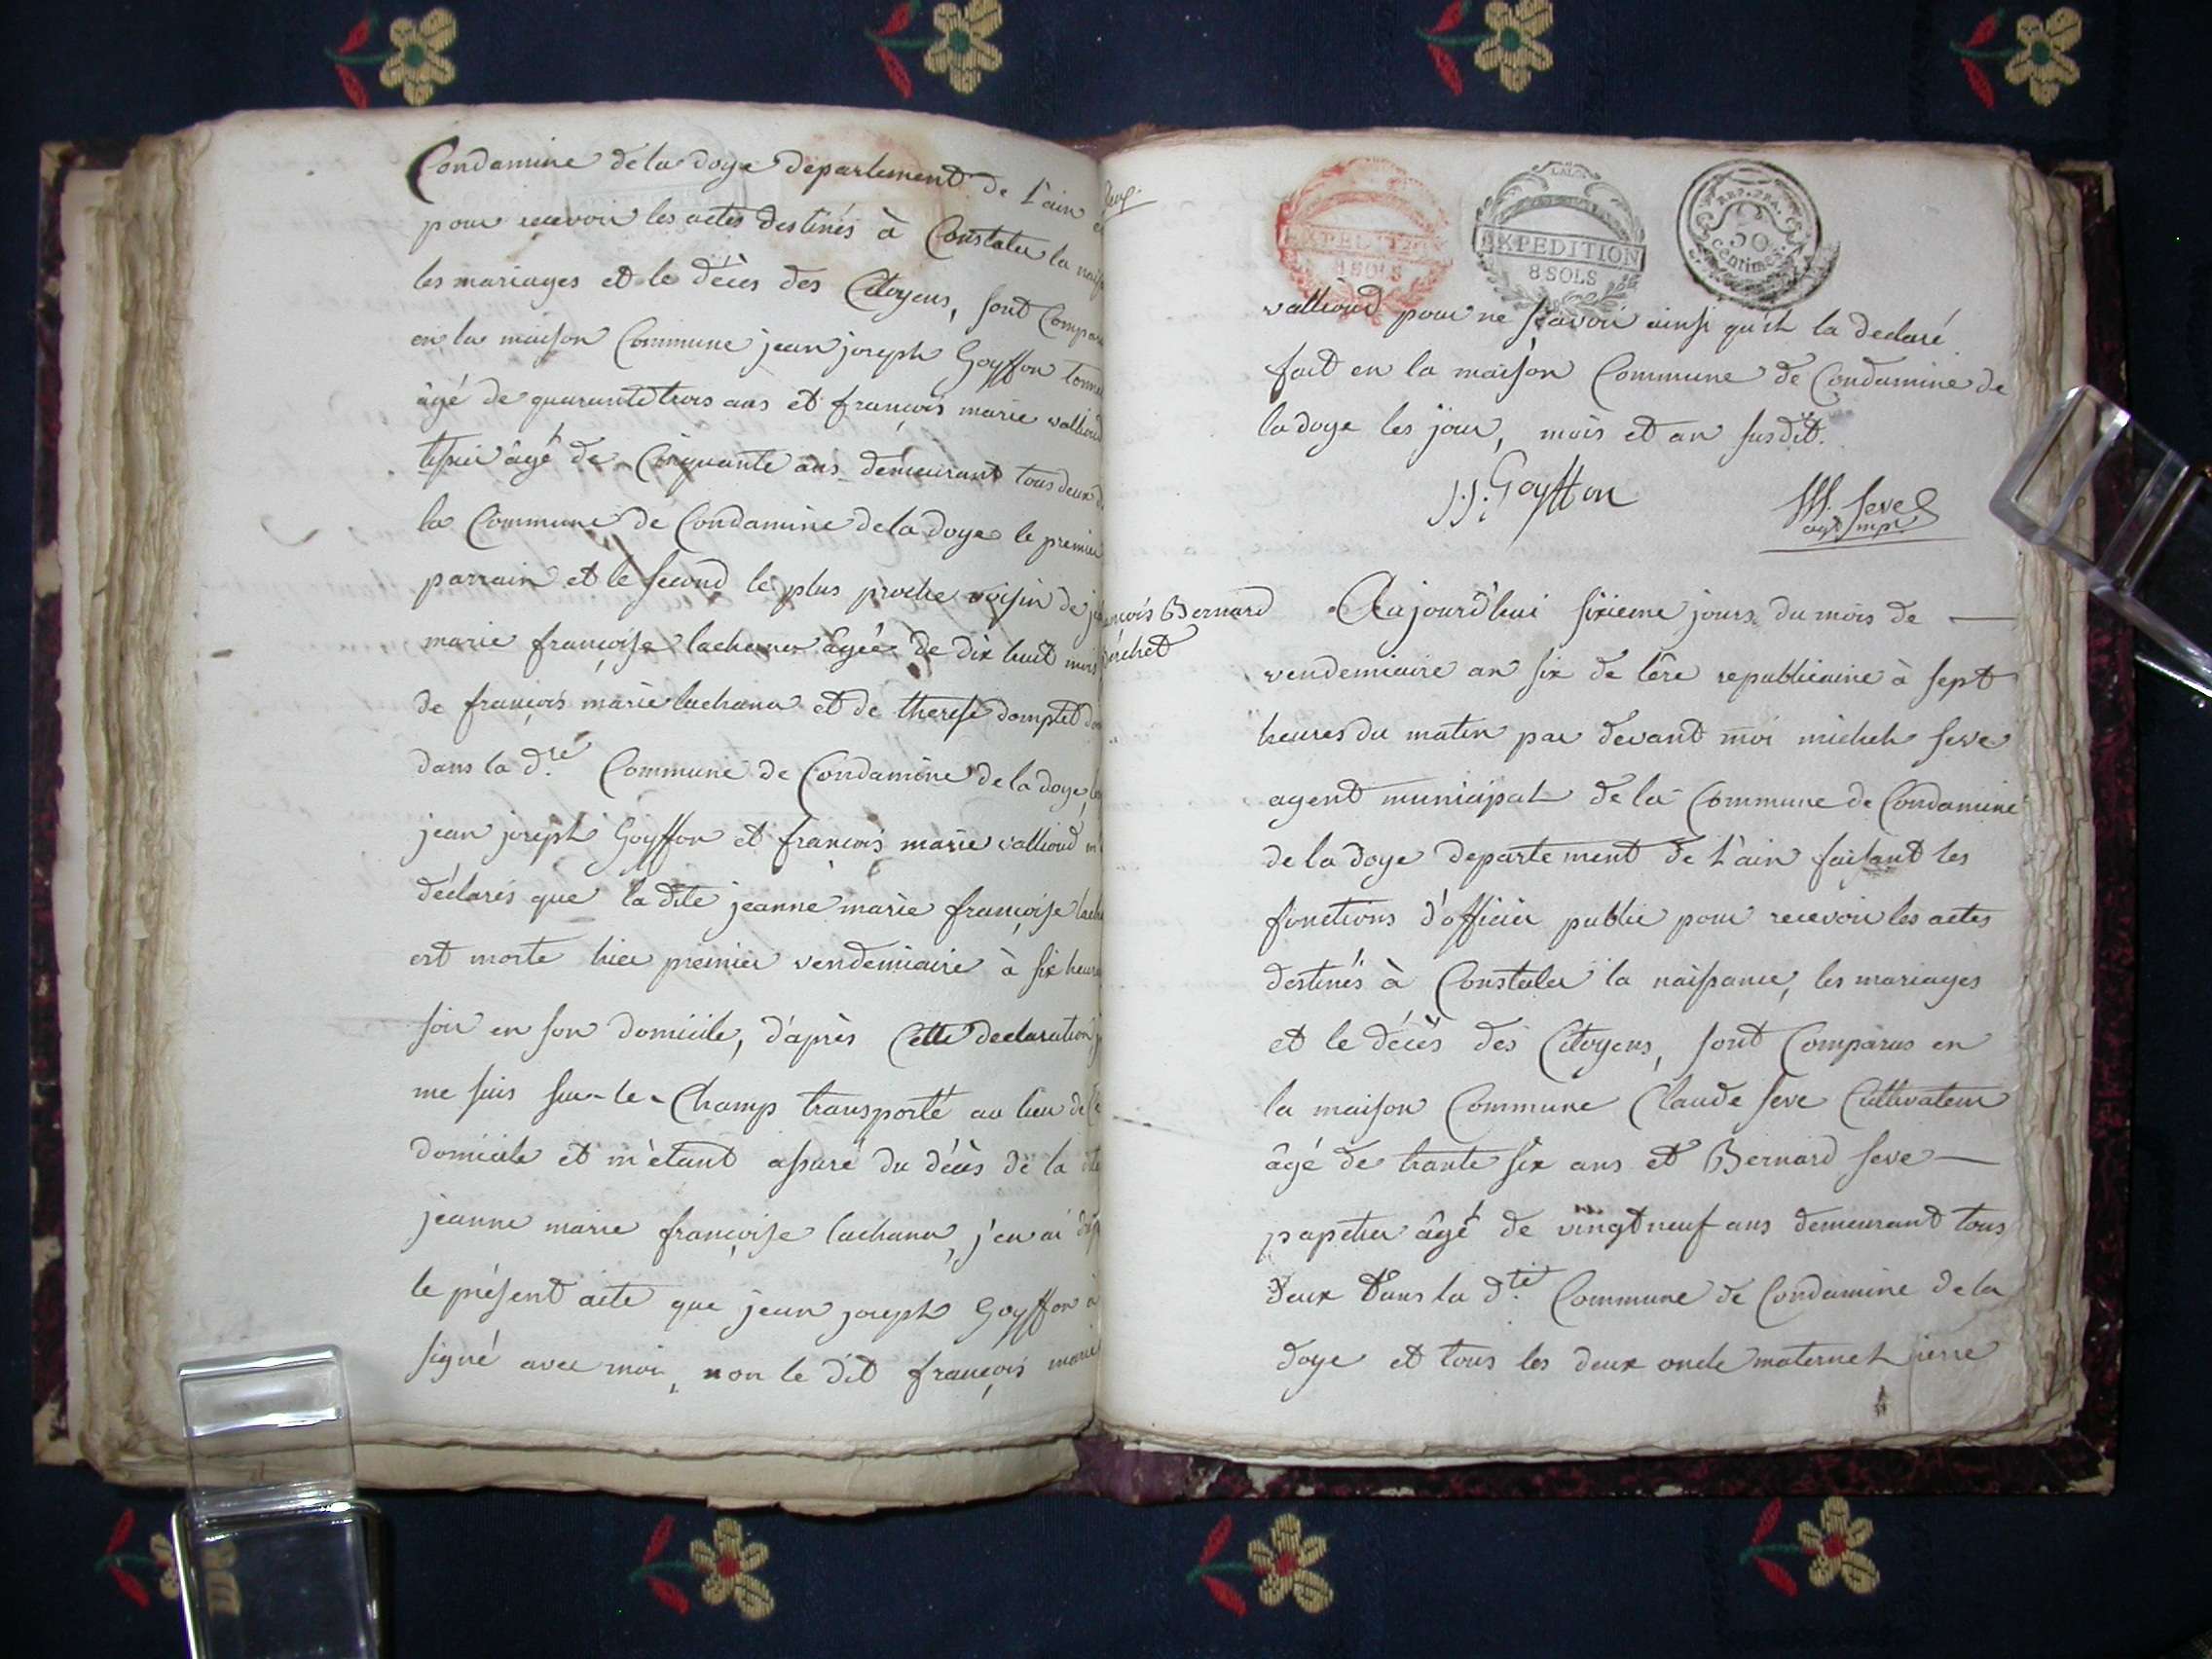 Condamine de la doye departement de L'ain
pour recevoir les actes destinés à Constater la
les mariages et le décès des Citoyens, sont
en la maison Commune jean joseph Goyffon
âgé de quarante trois ans et françois marie vallioud
âgé de Cinquante ans demeurant tous deux
la Commune de Condamine de la doye le premier
parrain et le second le plus proche voisin de
marie françoise lachana âgée de dix huit mois
de françois marie lachana et de therese domptet
dans la d.te Commune de Condamine de la doye,
jean joseph Goyffon et françois marie vallioud
déclarés que la dite jeanne marie françoise
est morte hier premier vendemiaire à six
soir en son domicile, d'après Cette declaration
me suis sur-le-Champ transporté au lieu de
domicile et m'étant assuré du décès de la
jeanne marie françoise lachana, j'en ai
le présent acte que jean joseph Goyffon à
signé avec moi, non le dit françois marie
EXPEDITION
8 SOLS
EXPEDITION
8 SOLS
REP. FRA.
50
Centimes
vallioud pour ne sçavoir ainsi qu'il la declaré
fait en la maison Commune de Condamine de
la doye les jour, mois et an susdit.
J.J. Goyffon
M. Seve
agt mpl
Bernard
Aujourd'hui sixieme jours du mois de
vendemiaire an six de l'ère republicaine à sept
heures du matin par devant moi michel seve
agent municipal de la Commune de Condamine
de la doye departement de L'ain faisant les
fonctions d'officier public pour recevoir les actes
destinés à Constater la naissance, les mariages
et le décès des Citoyens, sont Comparus en
la maison Commune Claude seve Cultivateur
âgé de trante six ans et Bernard seve
papetier âgé de vingt neuf ans demeurant tous
deux dans la d.te Commune de Condamine de la
doye et tous les deux oncle maternel